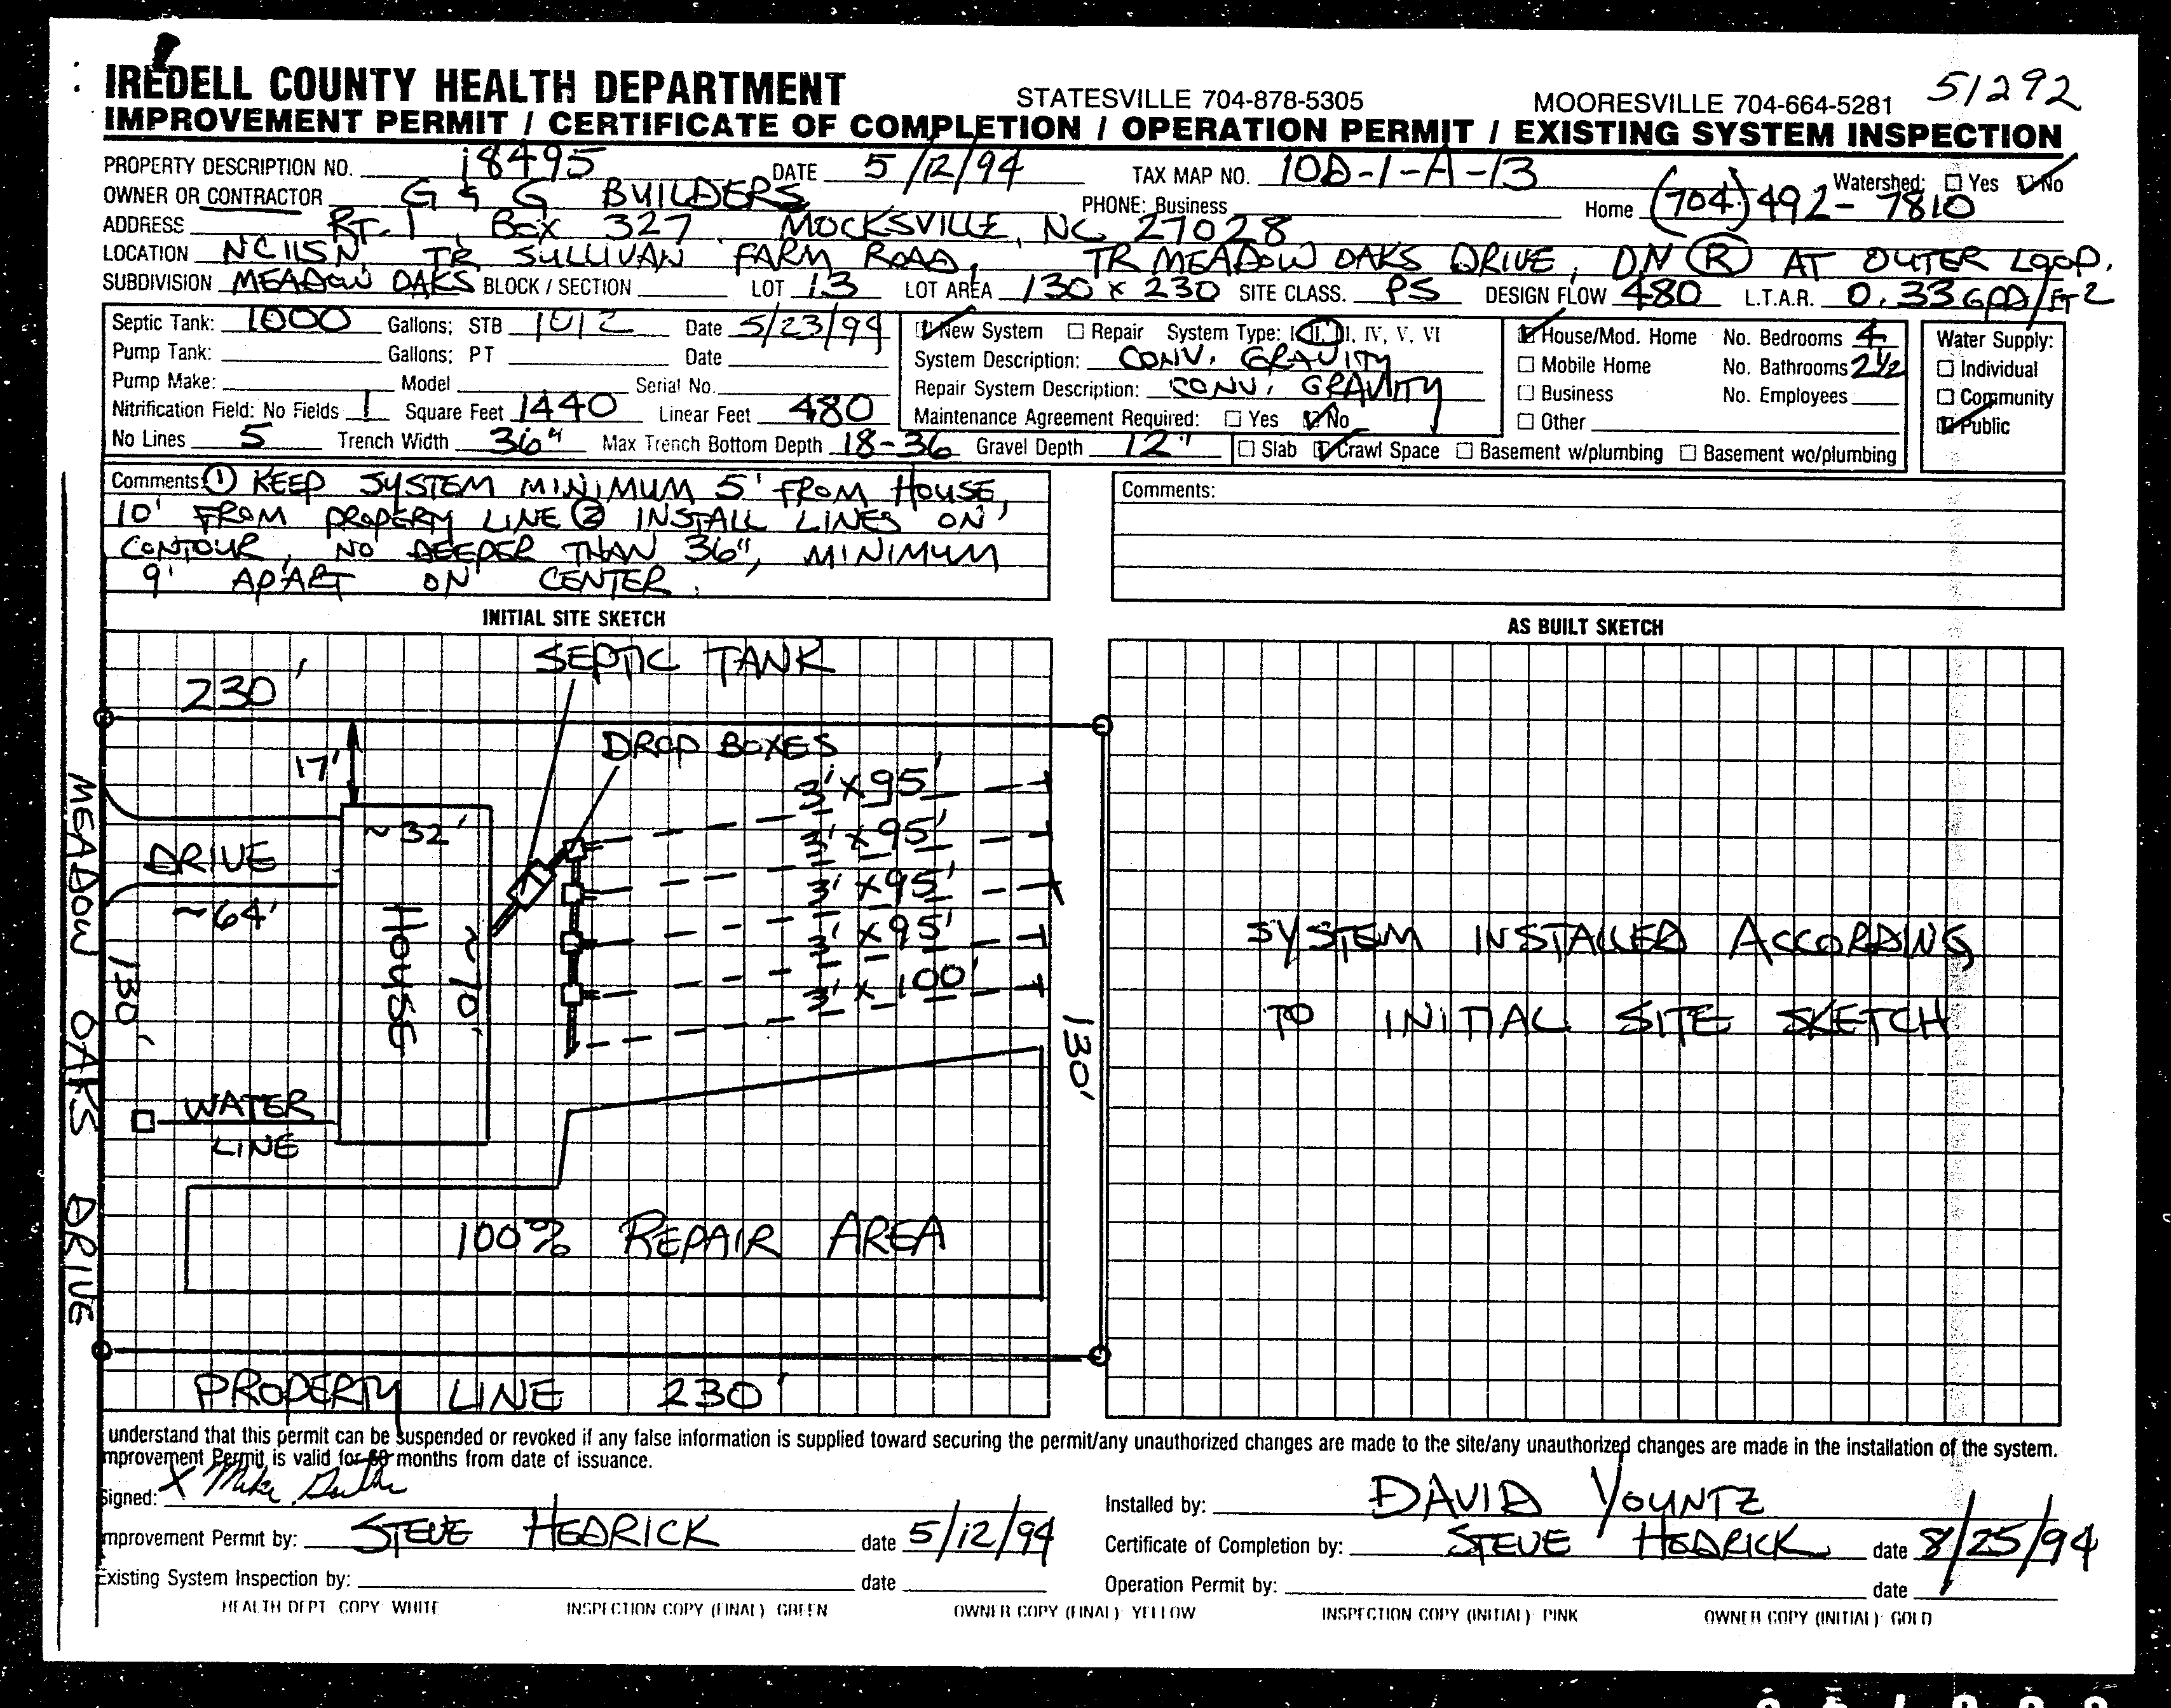 51292
IREDELL COUNTY HEALTH DEPARTMENT STATESVILLE 704-878-5305 MOORESVILLE 704-664-5281
IMPROVEMENT PERMIT / CERTIFICATE OF COMPLETION / OPERATION PERMIT / EXISTING SYSTEM INSPECTION
PROPERTY DESCRIPTION NO. 18495 DATE 5/12/94 TAX MAP NO. 10D-1-A-13 Watershed: Yes No
OWNER OR CONTRACTOR G & G BUILDERS PHONE: Business Home (704) 492-7810
ADDRESS RT. 1, BOX 327, MOCKSVILLE, NC 27028
LOCATION NC115N, TR SULLIVAN FARM ROAD, TR MEADOW OAKS DRIVE, ON R AT OUTER LOOP.
SUBDIVISION MEADOW OAKS BLOCK / SECTION LOT 13 LOT AREA 130 x 230 SITE CLASS. PS DESIGN FLOW 480 L.T.A.R. 0.33 GPD/FT2
Septic Tank: 1000 Gallons; STB 1012 Date 5/23/94
Pump Tank: Gallons; PT Date
Pump Make: Model Serial No.
Nitrification Field: No Fields 1 Square Feet 1440 Linear Feet 480
No Lines 5 Trench Width 36" Max Trench Bottom Depth 18-36 Gravel Depth 12"
New System Repair System Type: I, II, III, IV, V, VI
System Description: CONV. GRAVITY
Repair System Description: CONV. GRAVITY
Maintenance Agreement Required: Yes No
House/Mod. Home No. Bedrooms 4
Mobile Home No. Bathrooms 2 1/2
Business No. Employees
Other
Slab Crawl Space Basement w/plumbing Basement wo/plumbing
Water Supply:
Individual
Community
Public
Comments: ① KEEP SYSTEM MINIMUM 5' FROM HOUSE,
10' FROM PROPERTY LINE ② INSTALL LINES ON
CONTOUR, NO DEEPER THAN 36", MINIMUM
9' APART ON CENTER.
Comments:
INITIAL SITE SKETCH
SEPTIC TANK
230'
DROP BOXES
17'
3' x 95'
~32'
3' x 95'
DRIVE
3' x 95'
~64'
3' x 95'
HOUSE
~70'
3' x 100'
130'
130'
MEADOW OAKS DRIVE
WATER
LINE
100% REPAIR AREA
PROPERTY LINE 230'
AS BUILT SKETCH
SYSTEM INSTALLED ACCORDING
TO INITIAL SITE SKETCH
understand that this permit can be suspended or revoked if any false information is supplied toward securing the permit/any unauthorized changes are made to the site/any unauthorized changes are made in the installation of the system.
mprovement Permit is valid for 60 months from date of issuance.
Signed: X Mike
mprovement Permit by: STEVE HEDRICK date 5/12/94
Existing System Inspection by: date
Installed by: DAVID YOUNTZ
Certificate of Completion by: STEVE HEDRICK date 8/25/94
Operation Permit by: date
HEALTH DEPT COPY WHITE INSPECTION COPY (FINAL) GREEN OWNER COPY (FINAL) YELLOW INSPECTION COPY (INITIAL) PINK OWNER COPY (INITIAL) GOLD